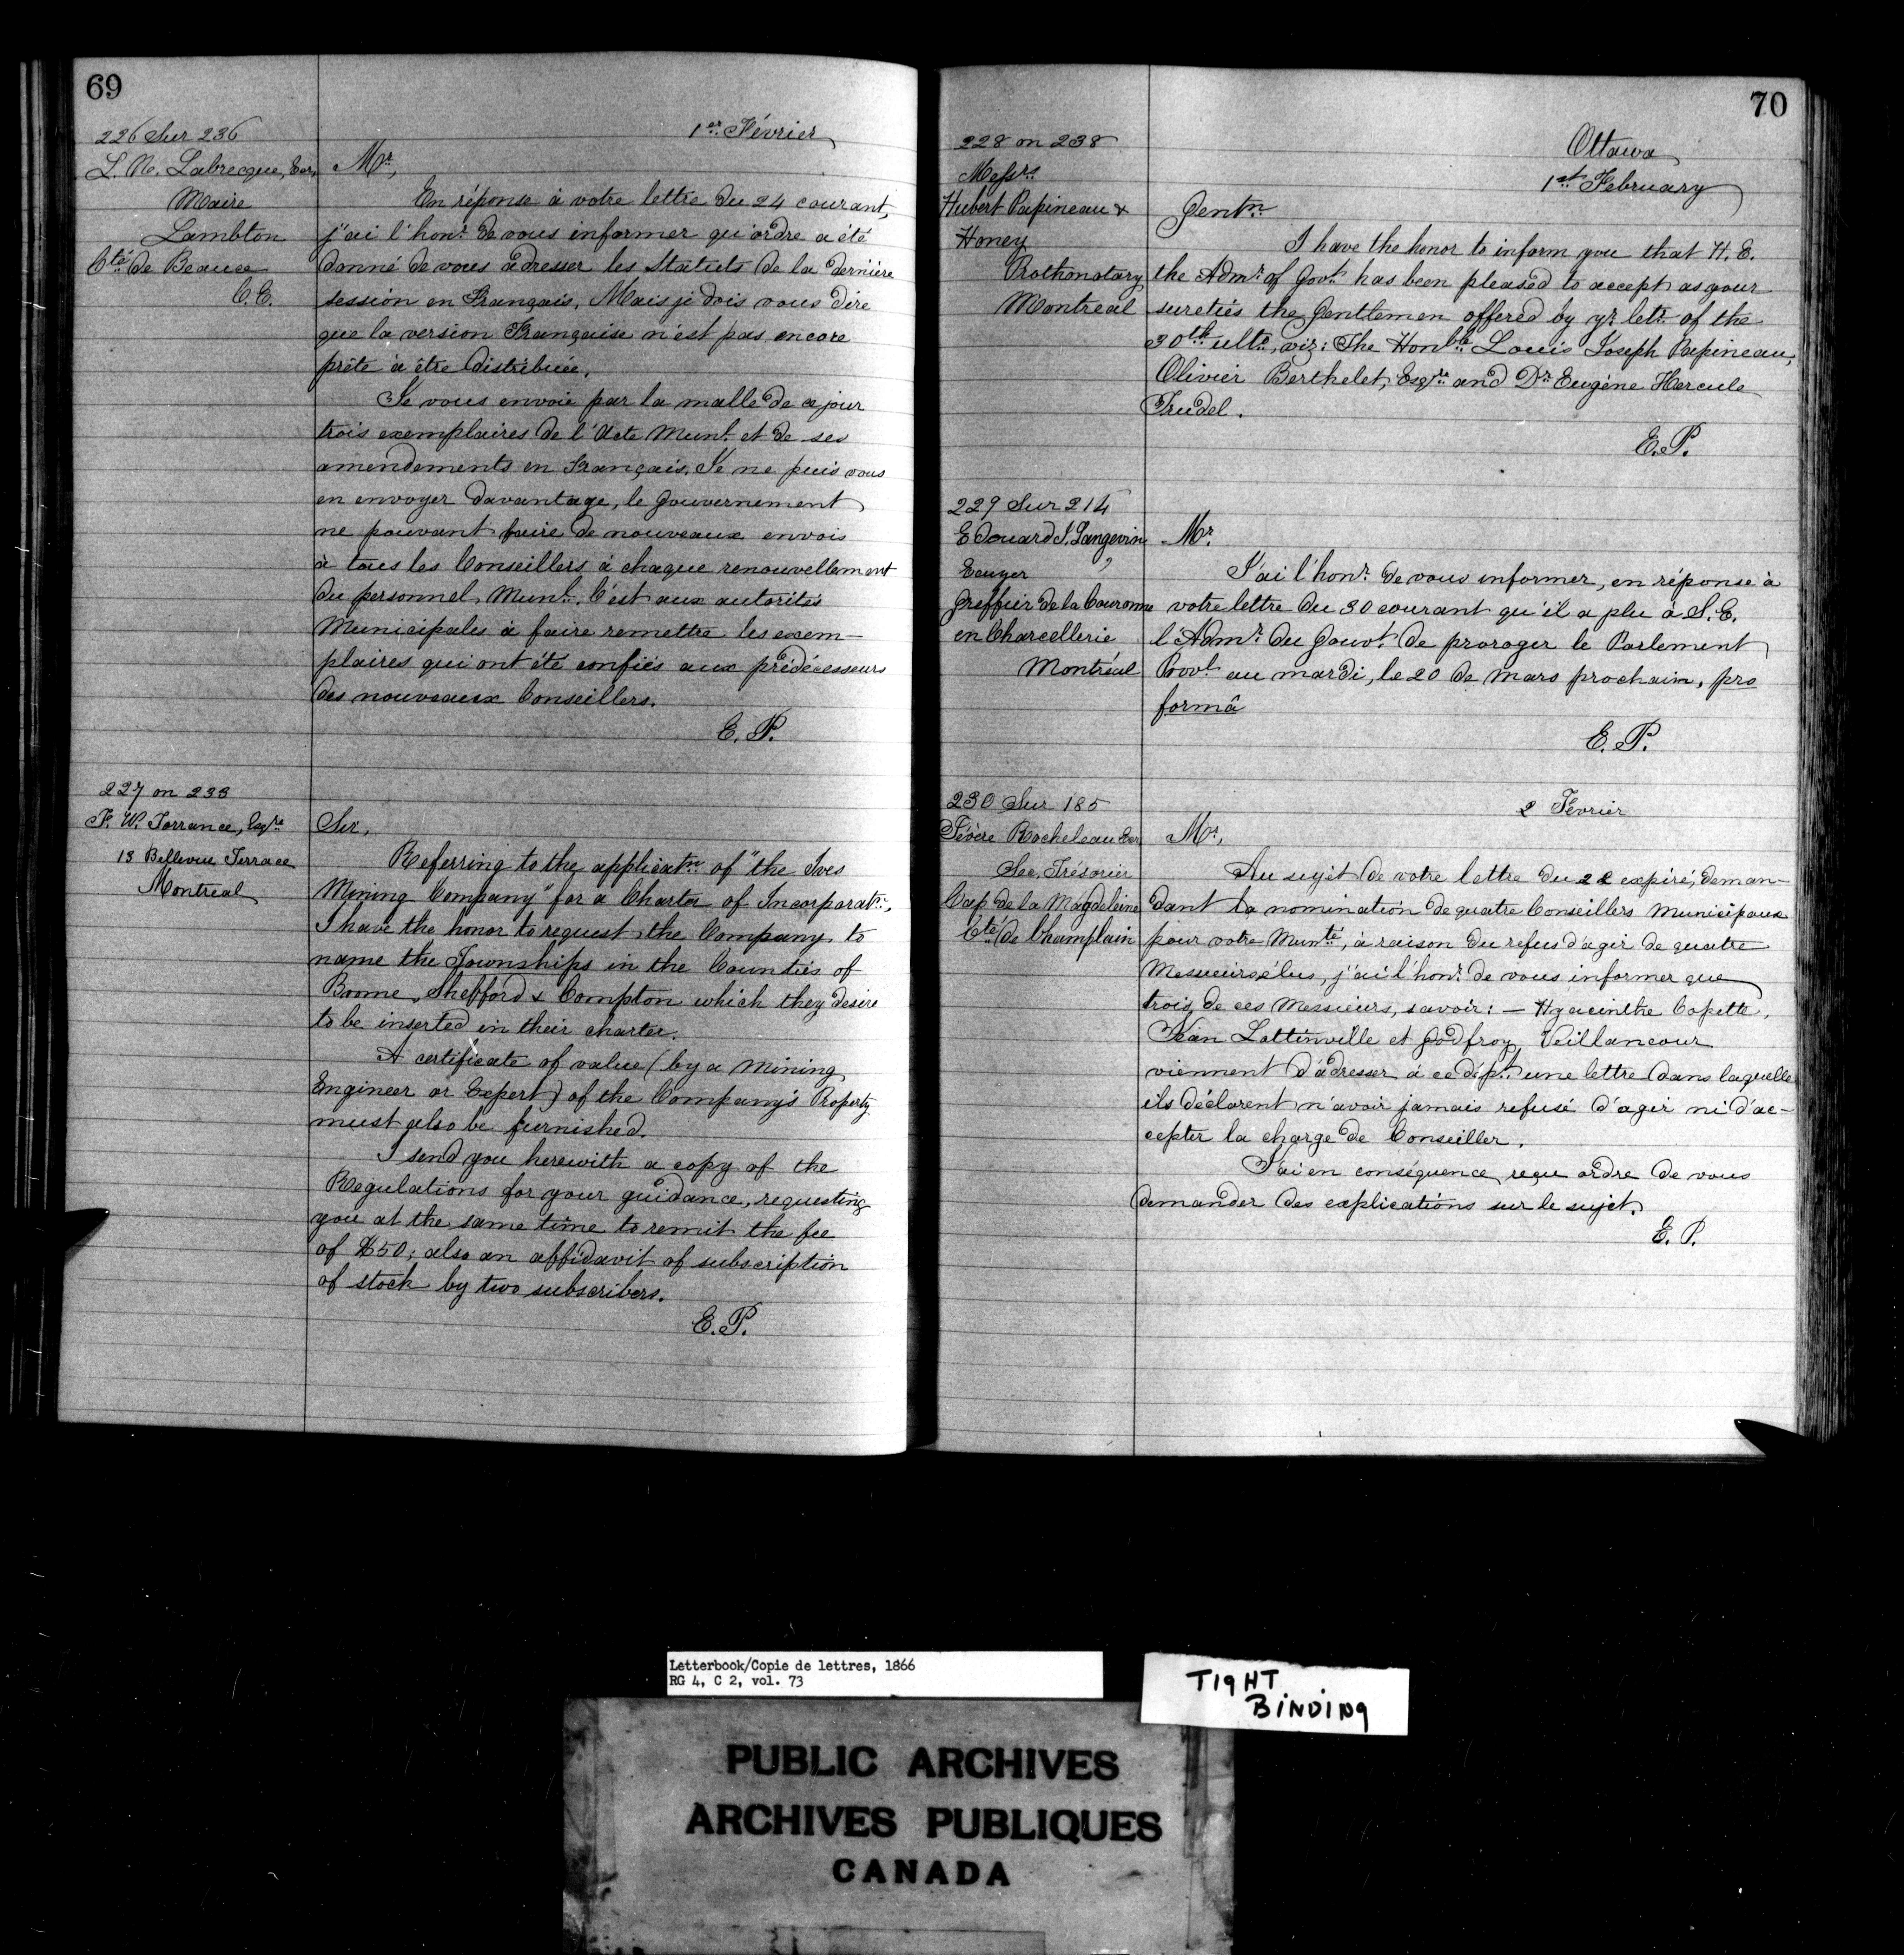 69
226 Sur 236
L. N. Labrecque, Ecr,
Maire
Lambton
Cté de Beauce
C.E.
1er Février
Mr,
En réponse à votre lettre du 24 courant,
j'ai l'honr de vous informer qu'ordre a été
donné de vous adresser les Statuts de la dernière
session en Français, Mais je dois vous dire
que la version Française n'est pas encore
prête à être distribuée.
Je vous envoie par la malle de ce jour
trois exemplaires de l'Acte Munl et de ses
amendements en Français. Je ne puis vous
en envoyer davantage, le Gouvernement
ne pouvant faire de nouveaux envois
à tous les Conseillers à chaque renouvellement
du personnel Munl. C'est aux autorités
Municipales à faire remettre les exem-
plaires qui ont été confiés aux prédécesseurs
des nouveaux Conseillers.
E. P.
227 on 233
F. W. Torrance, Esqre
13 Bellevue Terrace
Montreal
Sir,
Referring to the applicatn of "the Ives
Mining Company" for a Charter of Incorporatn,
I have the honor to request the Company to
name the Townships in the Counties of
Brome, Shefford & Compton which they desire
to be inserted in their charter.
A certificate of value (by a Mining
Engineer or Expert) of the Company's Property
must also be furnished.
I send you herewith a copy of the
Regulations for your guidance, requesting
you at the same time to remit the fee
of $50; also an affidavit of subscription
of stock by two subscribers.
E. P.
70
228 on 238
Messrs
Hubert Papineau &
Honey
Prothonotary
Montreal
Ottawa
1st February
Gentn
I have the honor to inform you that H. E.
the Admr of Govt has been pleased to accept as your
sureties the Gentlemen offered by yr letr of the
30th ulto, viz: The Honble Louis Joseph Papineau,
Olivier Berthelet, Esqre and Dr Eugène Hercule
Trudel.
E. P.
229 Sur 214
Edouard J. Langevin,
Ecuyer
Greffier de la Couronne
en Chancellerie
Montréal
Mr.
J'ai l'honr de vous informer, en réponse à
votre lettre du 30 courant qu'il a plu à S. E.
l'Admr du Gouvt de proroger le Parlement
Provl au mardi, le 20 de Mars prochain, pro
formâ
E. P.
230 Sur 185
Sévère Rocheleau Ecr
Sec. Trésorier
Cap de la Magdeleine
Cté de Champlain
2 Février
Mr,
Au sujet de votre lettre du 22 expiré, deman-
dant la nomination de quatre Conseillers Municipaux
pour votre Munté, à raison du refus d'agir de quatre
Messieurs élus, j'ai l'honr de vous informer que
trois de ces Messieurs, savoir: — Hyacinthe Copette,
Jean Lottinville et Godfroy Veillancour
viennent d'adresser à ce dépt une lettre dans laquelle
ils déclarent n'avoir jamais refusé d'agir ni d'ac-
cepter la charge de Conseiller.
J'ai en conséquence reçu ordre de vous
demander des explications sur le sujet.
E. P.
Letterbook/Copie de lettres, 1866
RG 4, C 2, vol. 73
TIGHT
BINDING
PUBLIC ARCHIVES
ARCHIVES PUBLIQUES
CANADA